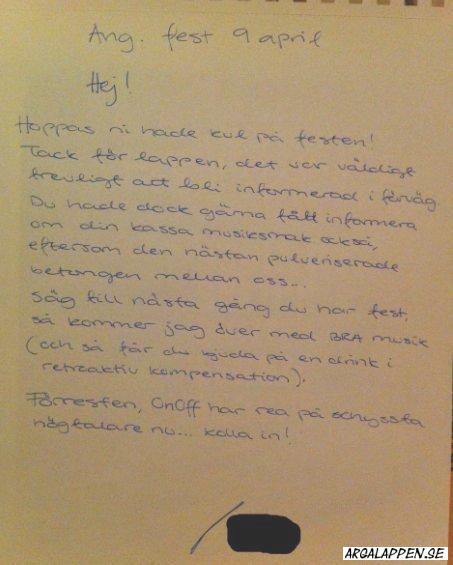 Ang. fest 9 april
Hej!
Hoppas ni hade kul på festen!
Tack för lappen, det var väldigt
trevligt att bli informerad i förväg.
Du hade dock gärna fått informera
om din kassa musiksmak också,
eftersom den nästan pulveriserade
betongen mellan oss...
Säg till nästa gång du har fest,
så kommer jag över med BRA musik
(och så får du bjuda på en drink i
retroaktiv kompensation).
Förresten, OnOff har rea på schyssta
högtalare nu... kolla in!
ARGALAPPEN.SE